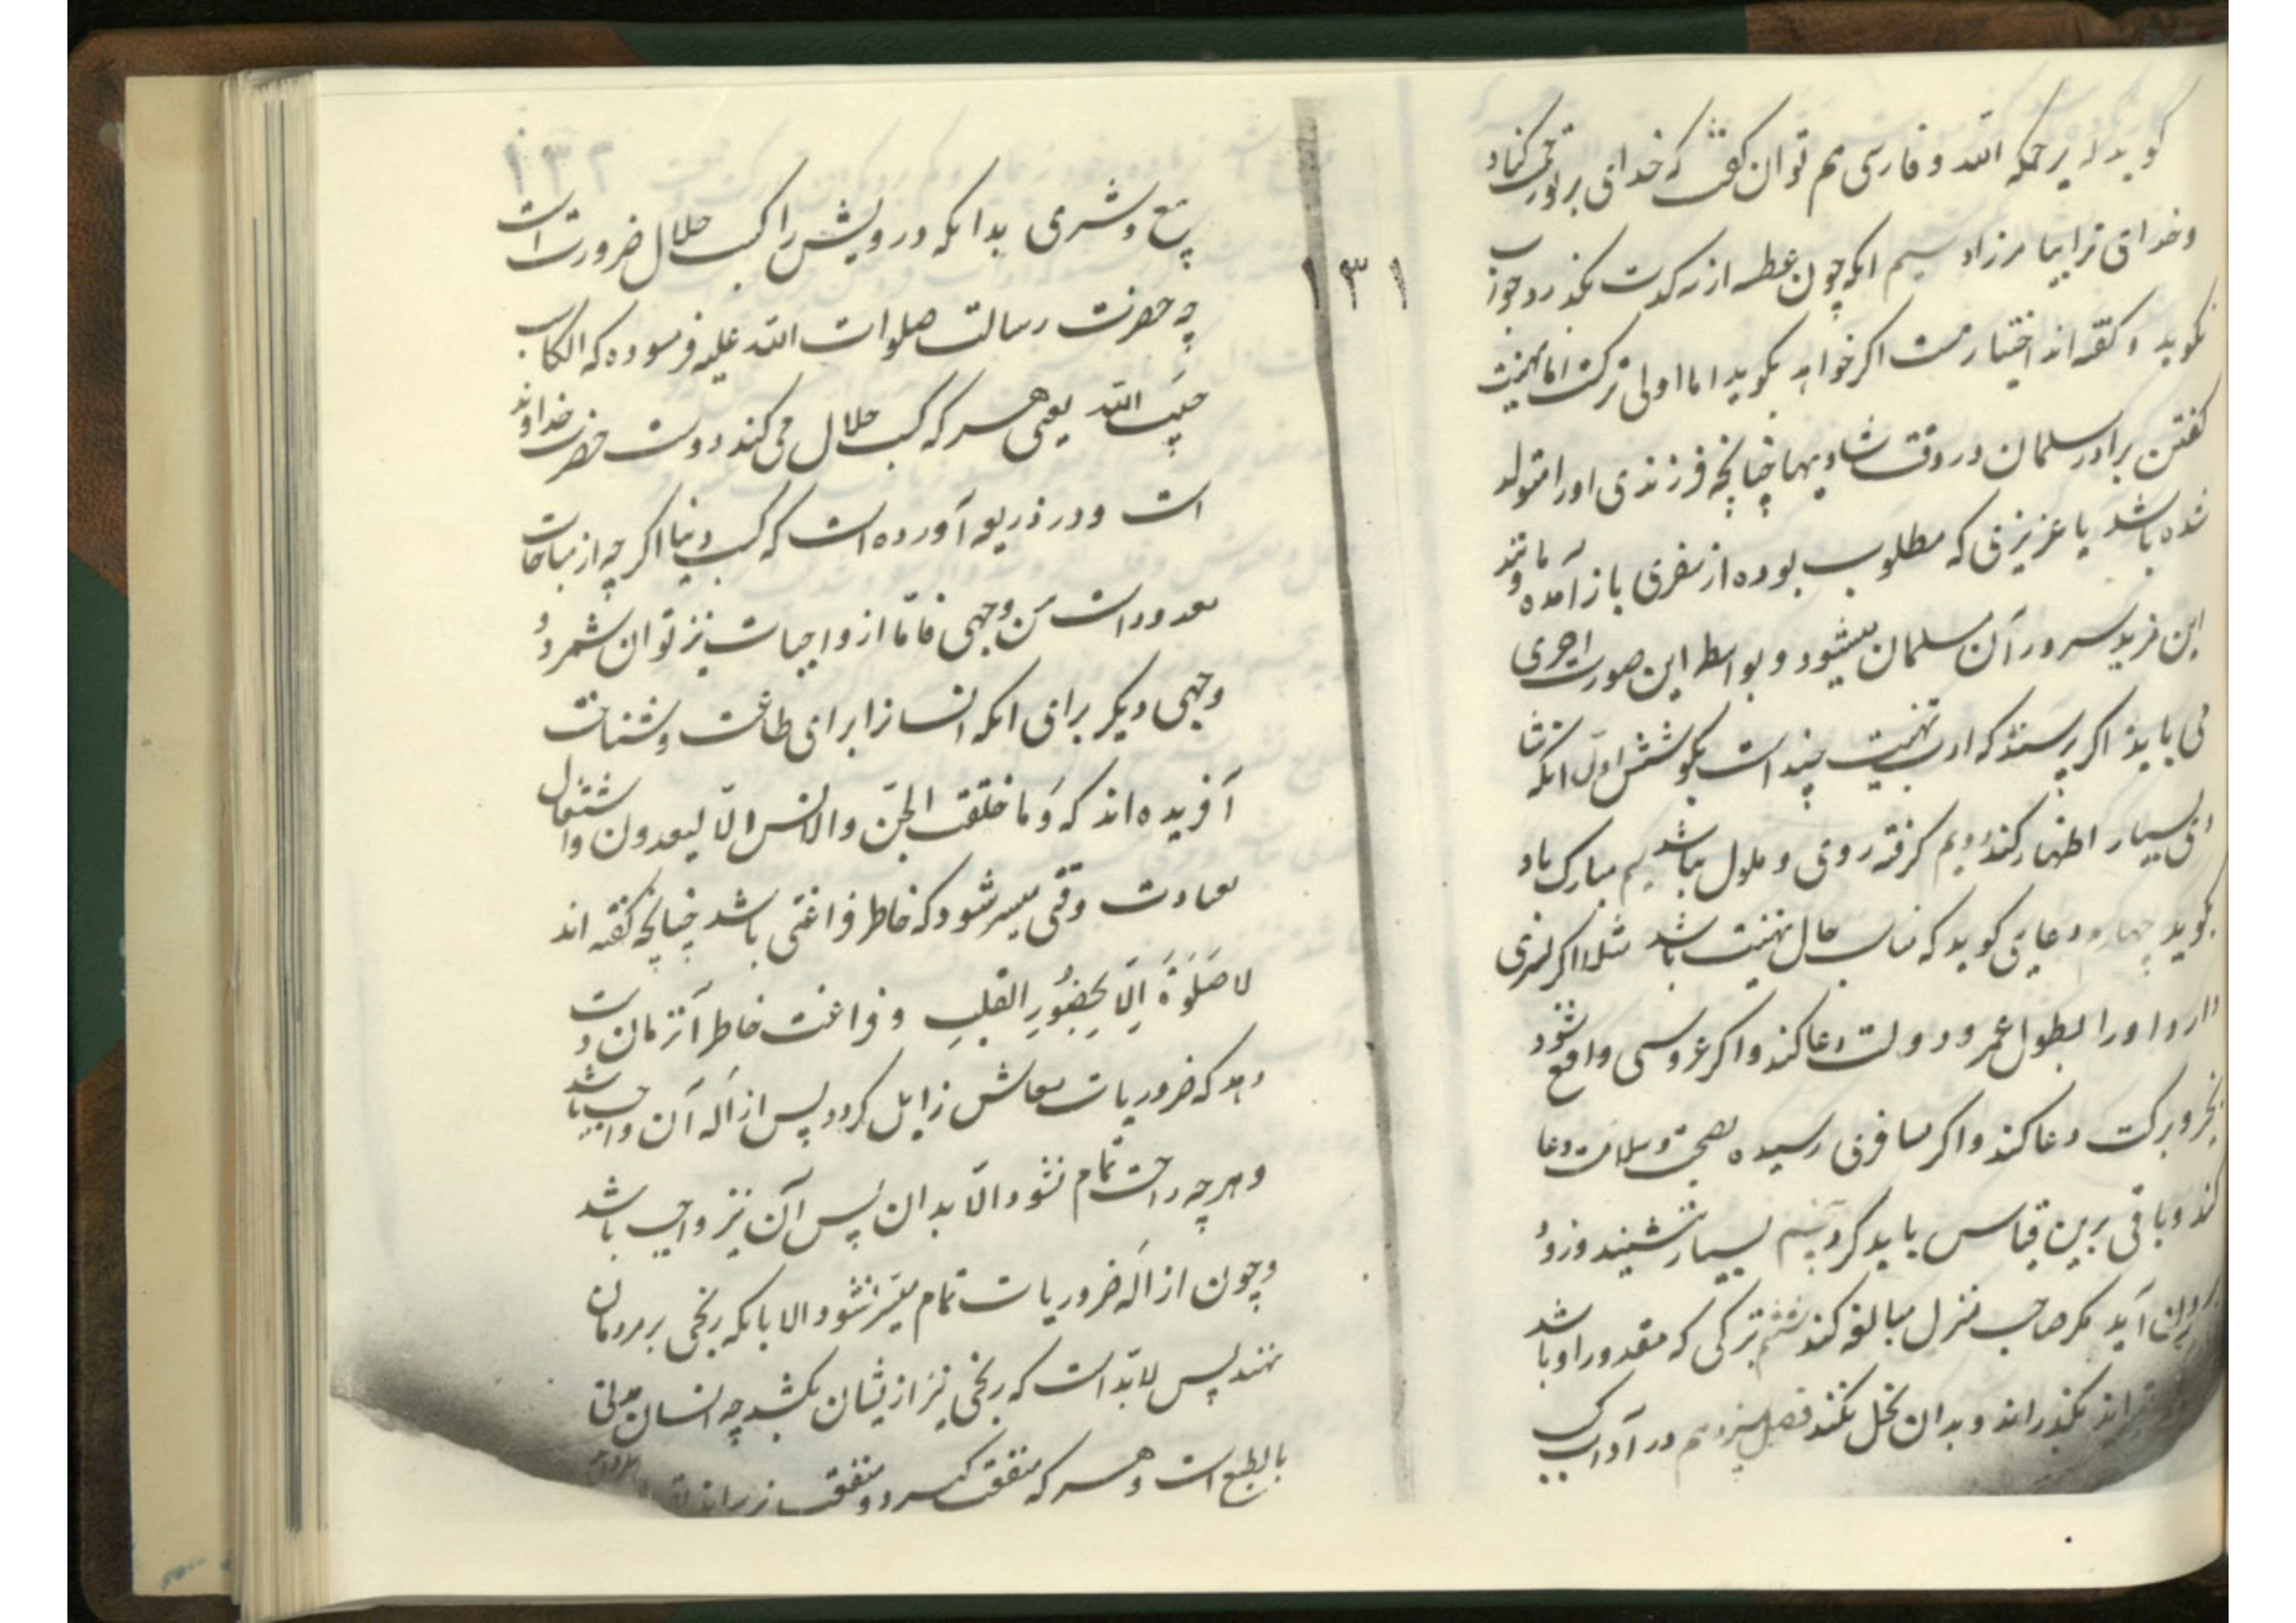 گوید له یرحمکم الله و فارسی هم توان گفت که خدای بر تو رحمت کناد
و خدای ترا بیامرزاد سیم انکه چون عطسه از سه کرت بگذرد جواب
نگوید و گفته اند اختیار هست اگر خواهد بگوید اما اولی ترکست اما تهنیت
گفتن برادر مسلمان در وقت شادیها چنانچه فرزندی اورا متولد
شده باشد یا عزیزی که مطلوب بوده از سفری باز آمده و مانند
این مزید سرور آن مسلمان میشود و بواسطه این صورت اجری
می یابد اگر پرسند که ادب تهنیت چند است بگو شش اول انکه نشاط
بسیار اظهار کند دویم گرفته روی و ملول نباشد سیم مبارک باد
بگوید چهارم دعایی گوید که مناسب حال تهنیت باشد مثلا اگر پسری
دارد اورا بطول عمر و دولت دعا کند و اگر عروسی واقع شود
بخیر و برکت دعا کند و اگر مسافری رسیده بصحت و سلامت دعا
کند و باقی برین قیاس باید کرد پنجم بسیار ننشیند و زود
بیرون آید مگر صاحب منزل مبالغه کند ششم تبرکی که مقدور او باشد
بگذراند و بدان بخل نکند فصل سیزدهم در آداب کسب
۱۳۱
۱۳۲
بیع و شری بدانکه درویش را کسب حلال ضرورت است
چه حضرت رسالت صلوات الله علیه فرموده که الکاسب
حبیب الله یعنی هر که کسب حلال می کند دوست حضرت خداوند
است و در ذریعه آورده است که کسب دنیا اگر چه از مباحات
معدود است من وجهی فاما از واجبات نیز توان شمرد و
وجهی دیگر برای انکه انسانرا برای طاعت و شناخت
آفریده اند که وَما خلقت الجنّ والانس الّا لیعبدون و اشتغال
بعبادت وقتی میسر شود که خاطر فراغتی باشد چنانچه گفته اند
لا صَلٰوةَ اِلّا بِحُضُورِ القلبِ و فراغت خاطر آنزمان دست
دهد که ضروریات معاش زایل گردد پس ازاله آن واجب باشد
و هر چه راحت تمام نشود الّا بدان پس آن نیز واجب باشد
و چون ازاله ضروریات تمام میسر نشود الا بانکه رنجی بر مردمان
نهند پس لابد است که رنجی نیز ازیشان بکشد چه انسان مدنی
بالطبع است و هر که منفعت گیرد و منفعت نرساند